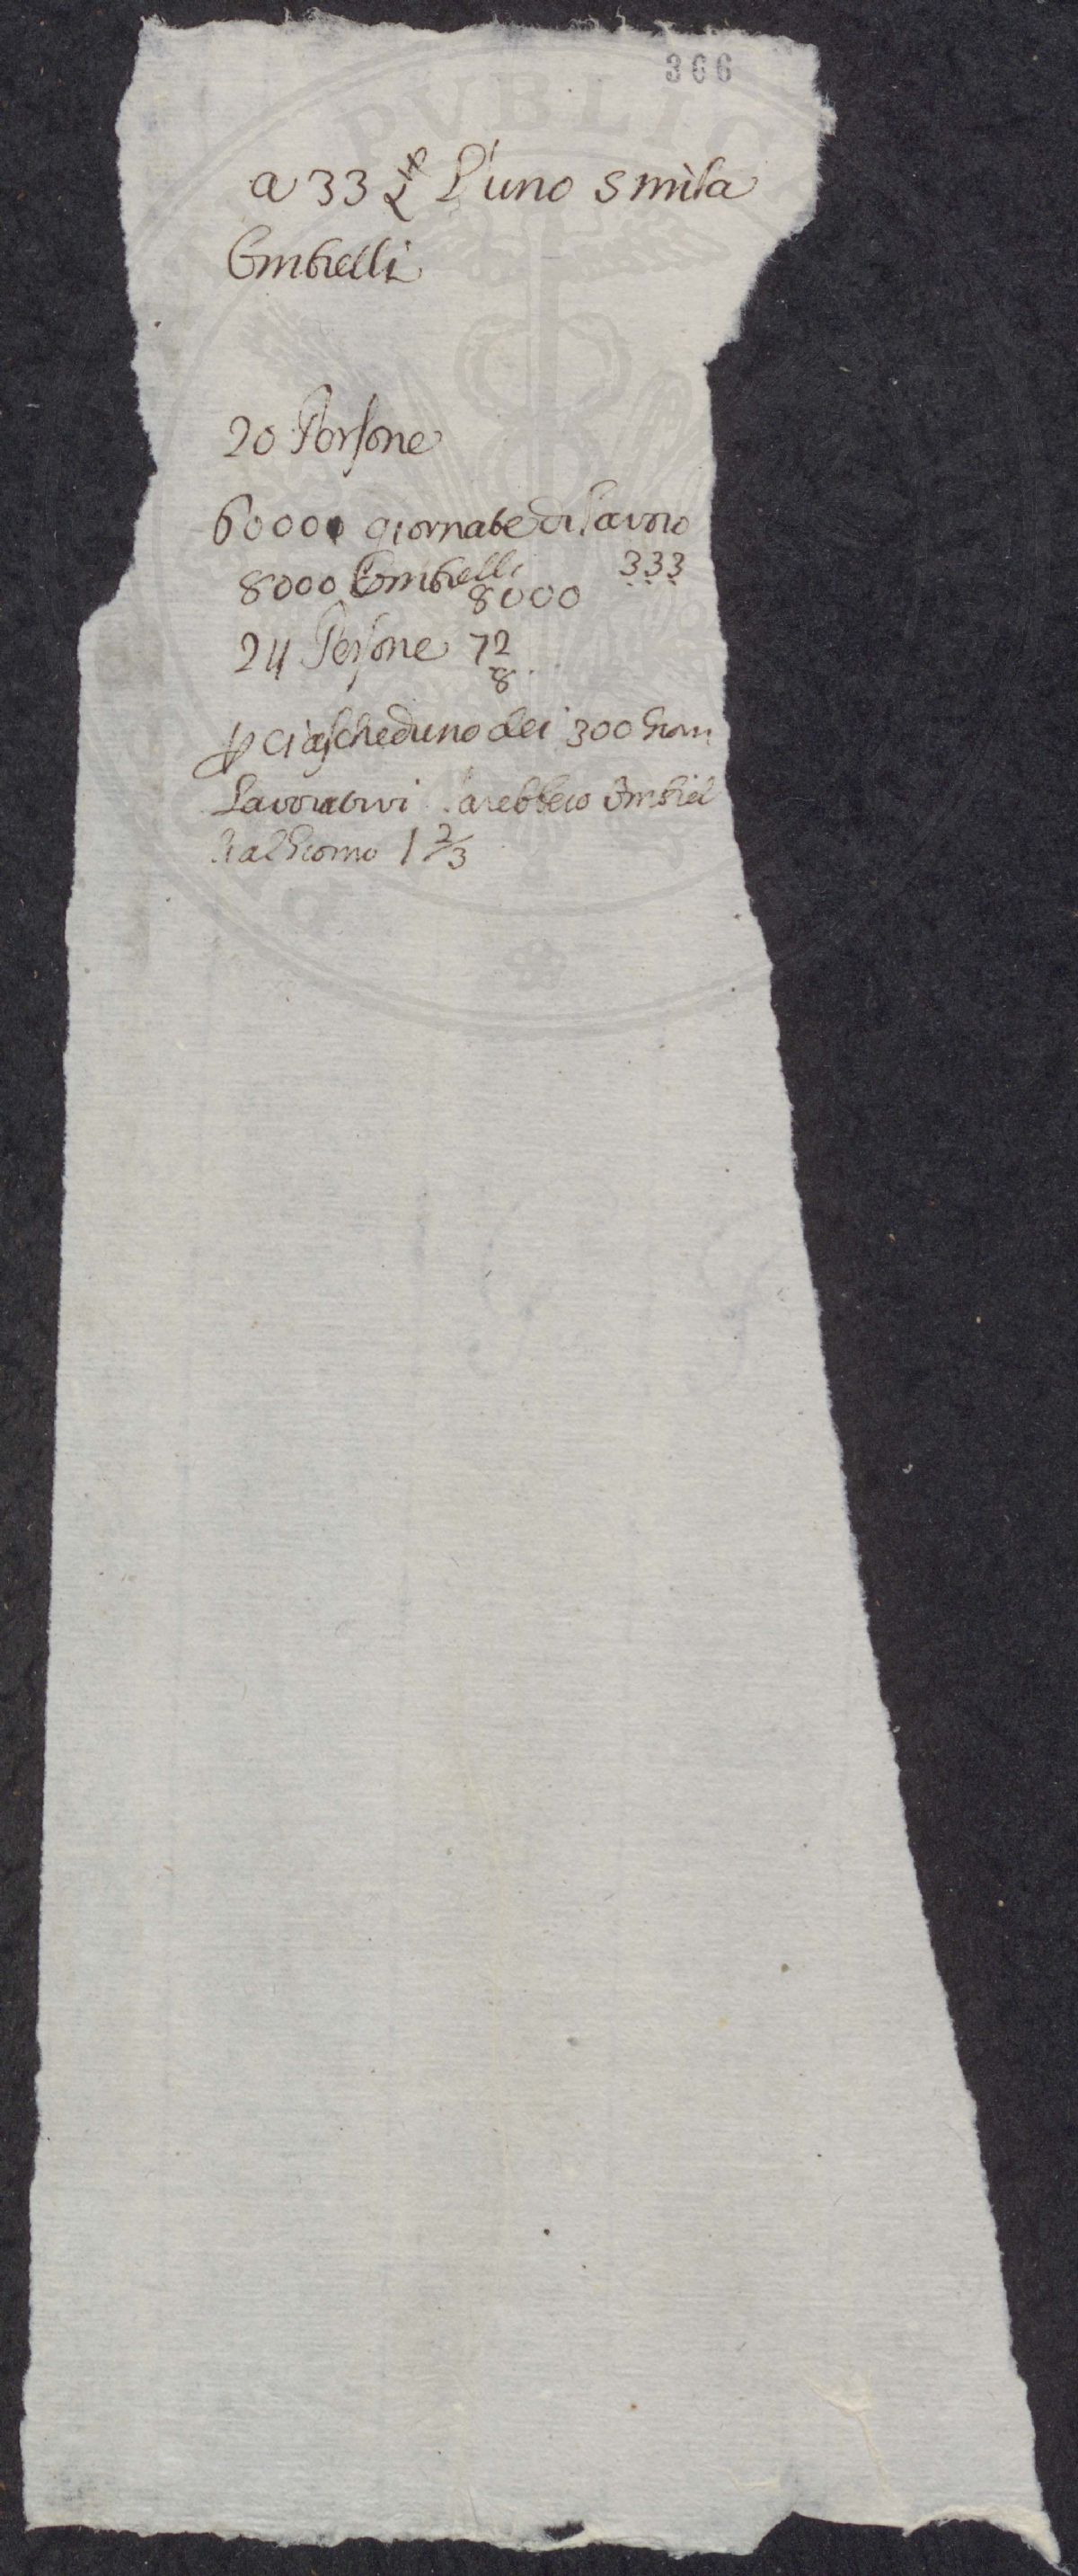 366
PVBLIC
a 33 L'uno 5 mila
Ombrelli
20 Persone
60000 giornate di lavoro
8000 Ombrelli 333
8000
24 Persone 72
8
p ciascheduno dei 300 Giorn
Lavorativi sarebbero Ombrel
li al Giorno 1 2/3